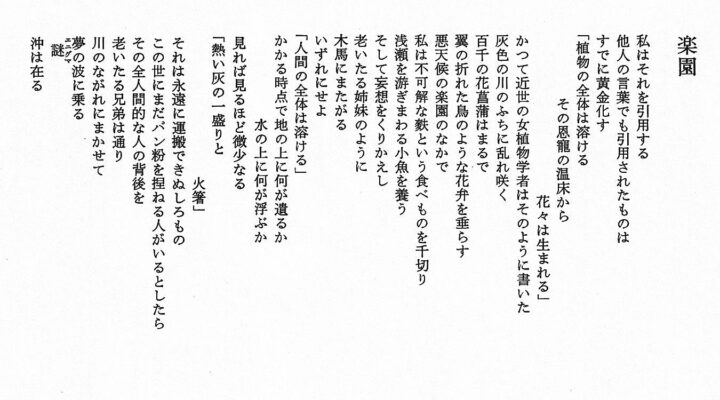 楽園
私はそれを引用する
他人の言葉でも引用されたものは
すでに黄金化す
「植物の全体は溶ける
その恩寵の温床から
花々は生まれる」
かつて近世の女植物学者はそのように書いた
灰色の川のふちに乱れ咲く
百千の花菖蒲はまるで
翼の折れた鳥のような花弁を垂らす
悪天候の楽園のなかで
私は不可解な麩という食べものを千切り
浅瀬を游ぎまわる小魚を養う
そして妄想をくりかえし
老いたる姉妹のように
木馬にまたがる
いずれにせよ
「人間の全体は溶ける」
かかる時点で地の上に何が遺るか
水の上に何が浮ぶか
見れば見るほど微少なる
「熱い灰の一盛りと
火箸」
それは永遠に運搬できぬしろもの
この世にまだパン粉を捏ねる人がいるとしたら
その全人間的な人の背後を
老いたる兄弟は通り
川のながれにまかせて
夢の波に乗る
謎エニグマ
沖は在る